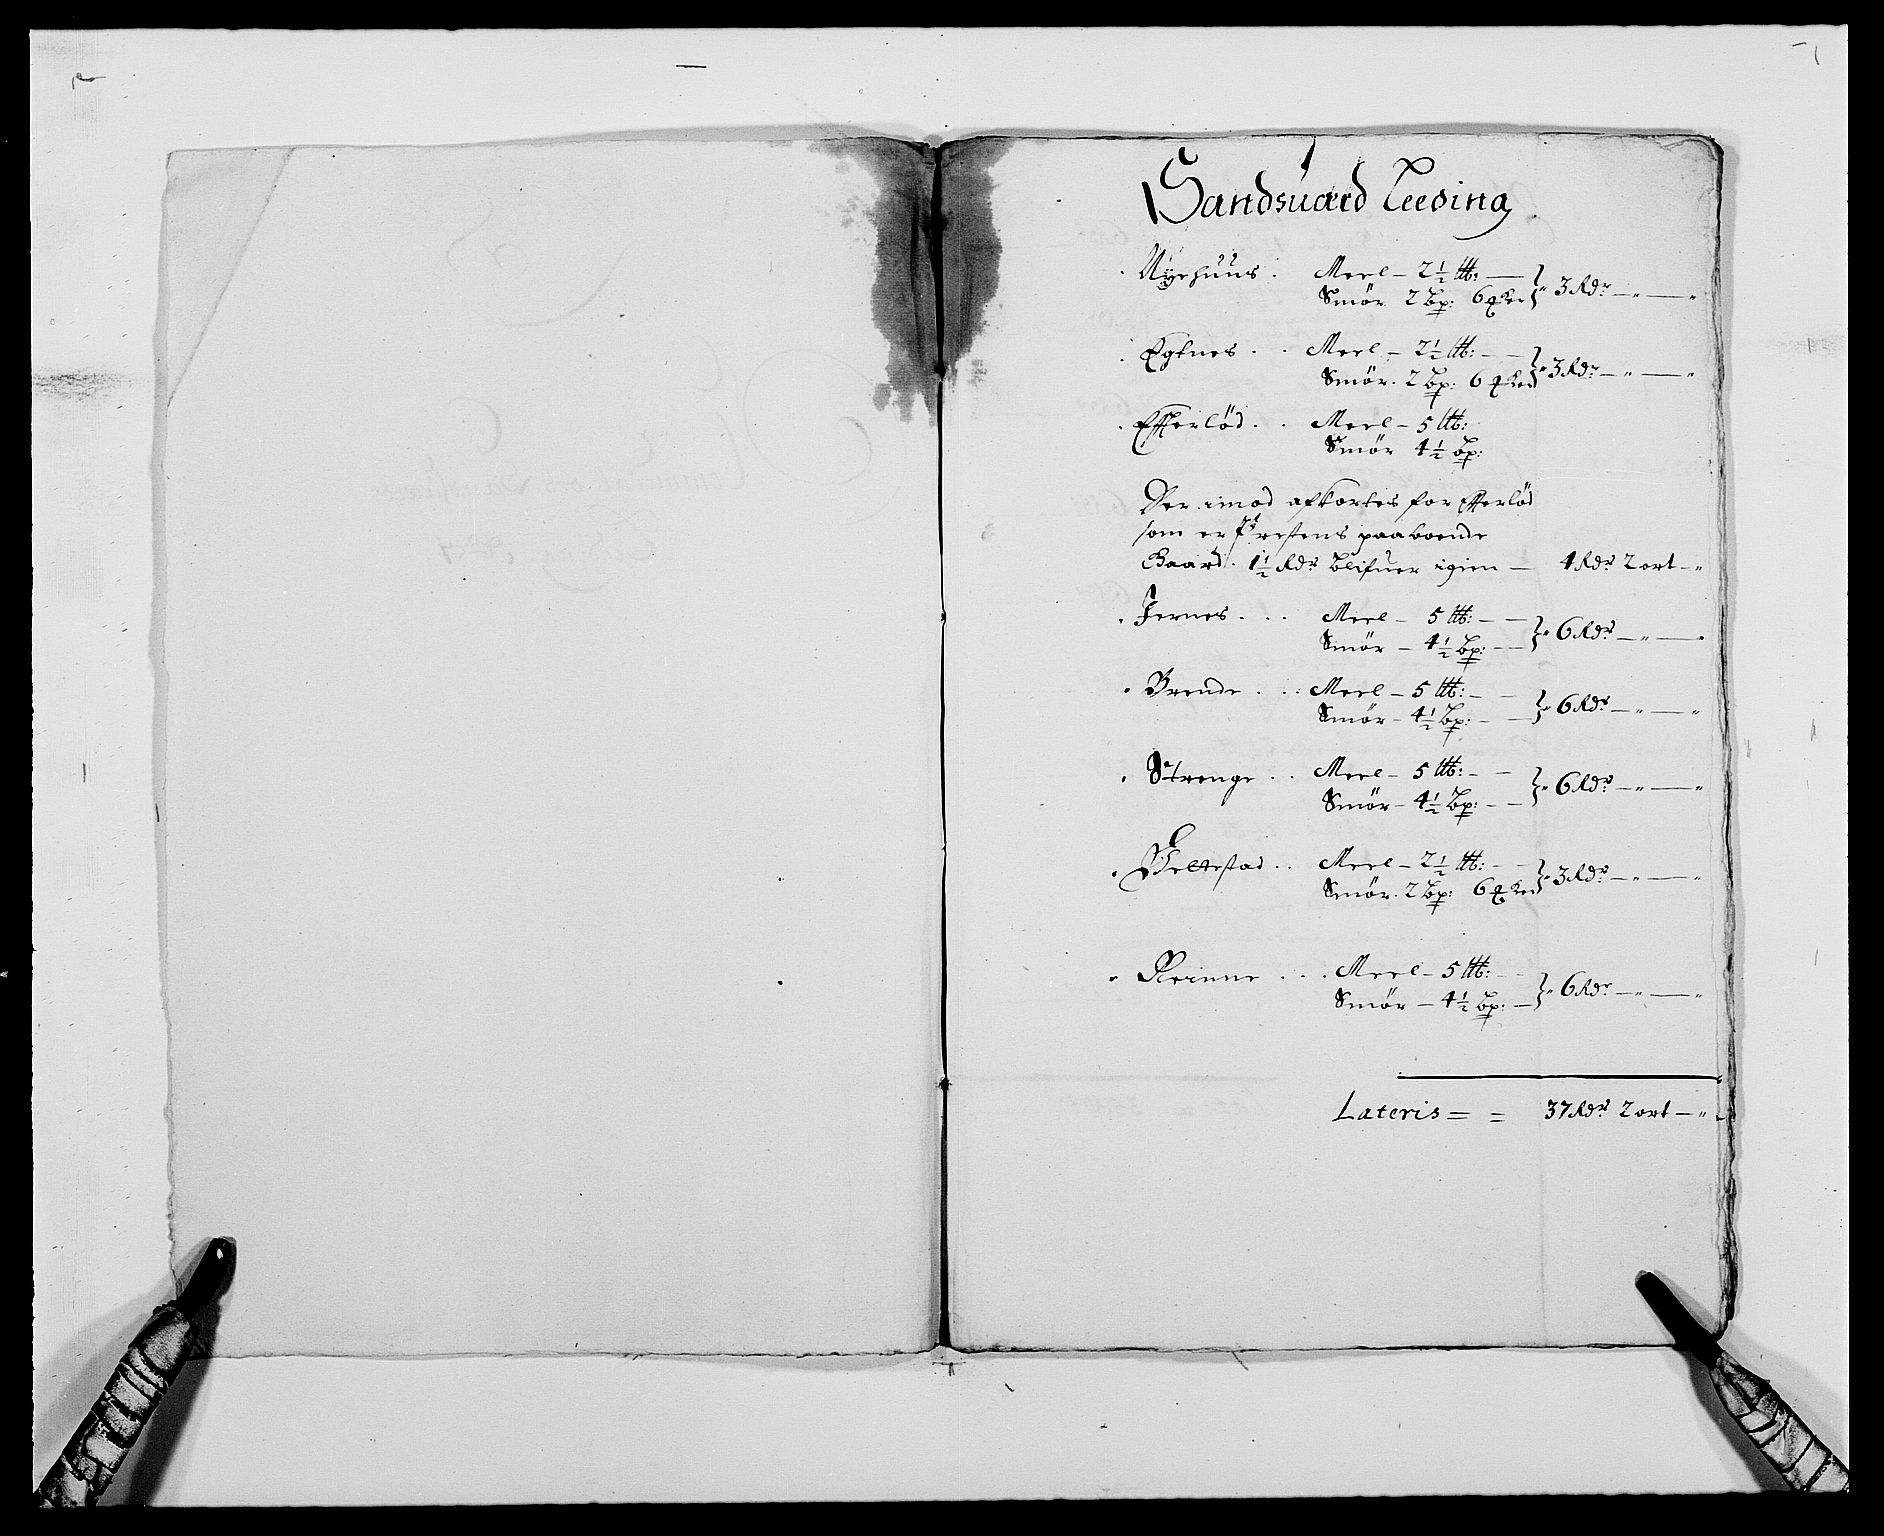 Sandsuærd Leeding
Nÿehuus. Meel – 2½ ℔: — 3 Rdr — „ — „
Smör 2 Bp: 6 ꝗ Ked
Egknes . . Meel – 2½ ℔: – — 3 Rdr — „ — „
Smör. 2 Bp: 6 ꝗ Ked
Efferlöd . . Meel – 5 ℔:
Smör 4½ Bp:
Der imod afkortes for Efferlöd
som er Prestens paaboende
Gaard. 1½ Rdr blifuer igien — 4 Rdr 2 ort – „
Jernes . . . Meel – 5 ℔: – — 6 Rdr — „ — „
Smör – 4½ Bp: – —
Brende . . : Meel – 5 ℔: – — 6 Rdr — „ — „
Smör – 4½ Bp: – —
Strenge . . Meel – 5 ℔: – — 6 Rdr — „ — „
Smör – 4½ Bp: – —
Melltestad . . Meel – 2½ ℔: – — 3 Rdr — „ — „
Smör. 2 Bp: 6 ꝗ Ked
. . . Meel – 5 ℔: – — 6 Rdr — „ — „
Smör – 4½ Bp: —
Lateris = = 37 Rdr 2 ort – „